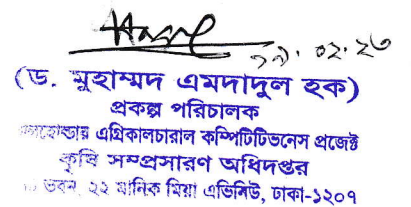 ১৯. ০২. ২৩
(ড. মুহাম্মদ এমদাদুল হক)
প্রকল্প পরিচালক
এগ্রিকালচারাল কম্পিটিটিভনেস প্রজেক্ট
কৃষি সম্প্রসারণ অধিদপ্তর
ভবন, ২২ মানিক মিয়া এভিনিউ, ঢাকা-১২০৭